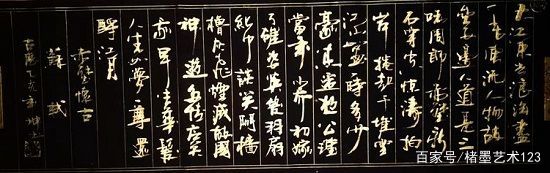 大江東去浪淘盡
千古風流人物故
壘西邊人道是三
國周郎赤壁亂
石穿空驚濤拍
岸捲起千堆雪
江山如畫一時多少
豪傑遙想公瑾
當年小喬初嫁
了雄姿英發羽扇
綸巾談笑間檣
櫓灰飛煙滅故國
神遊多情應笑
我早生華髮
人生如夢一尊還
酹江月
赤壁懷古
蘇軾
百家号/楮墨艺术123